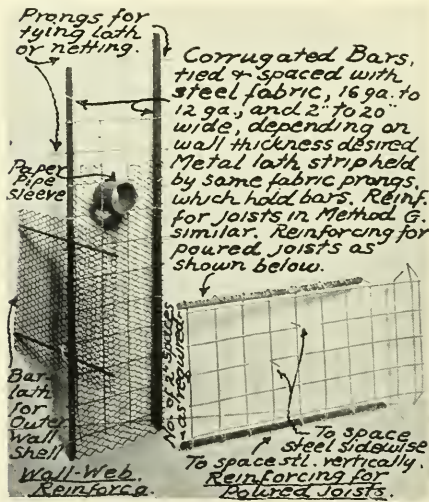 Prongs for
tying lath
or netting.
Corrugated Bars,
tied & spaced with
steel fabric, 16 ga. to
12 ga., and 2" to 20"
wide, depending on
wall thickness desired
Metal lath strip held
by same fabric prongs,
which hold bars. Reinf.
for joists in Method G.
similar. Reinforcing for
poured joists as
shown below.
Paper
Pipe
sleeve
Bar-
lath
for
Outer
Wall
Shell
Wall-Web
Reinforcg.
No. of 2" spaces
as required
To space
steel sidewise
To space stl. vertically.
Reinforcing for
Poured Joists.